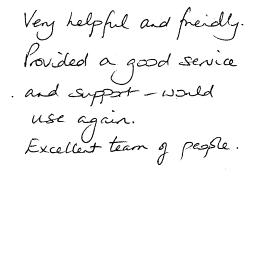 Very helpful and freindly.
Provided a good service
and support - would
use again.
Excellent team of people.